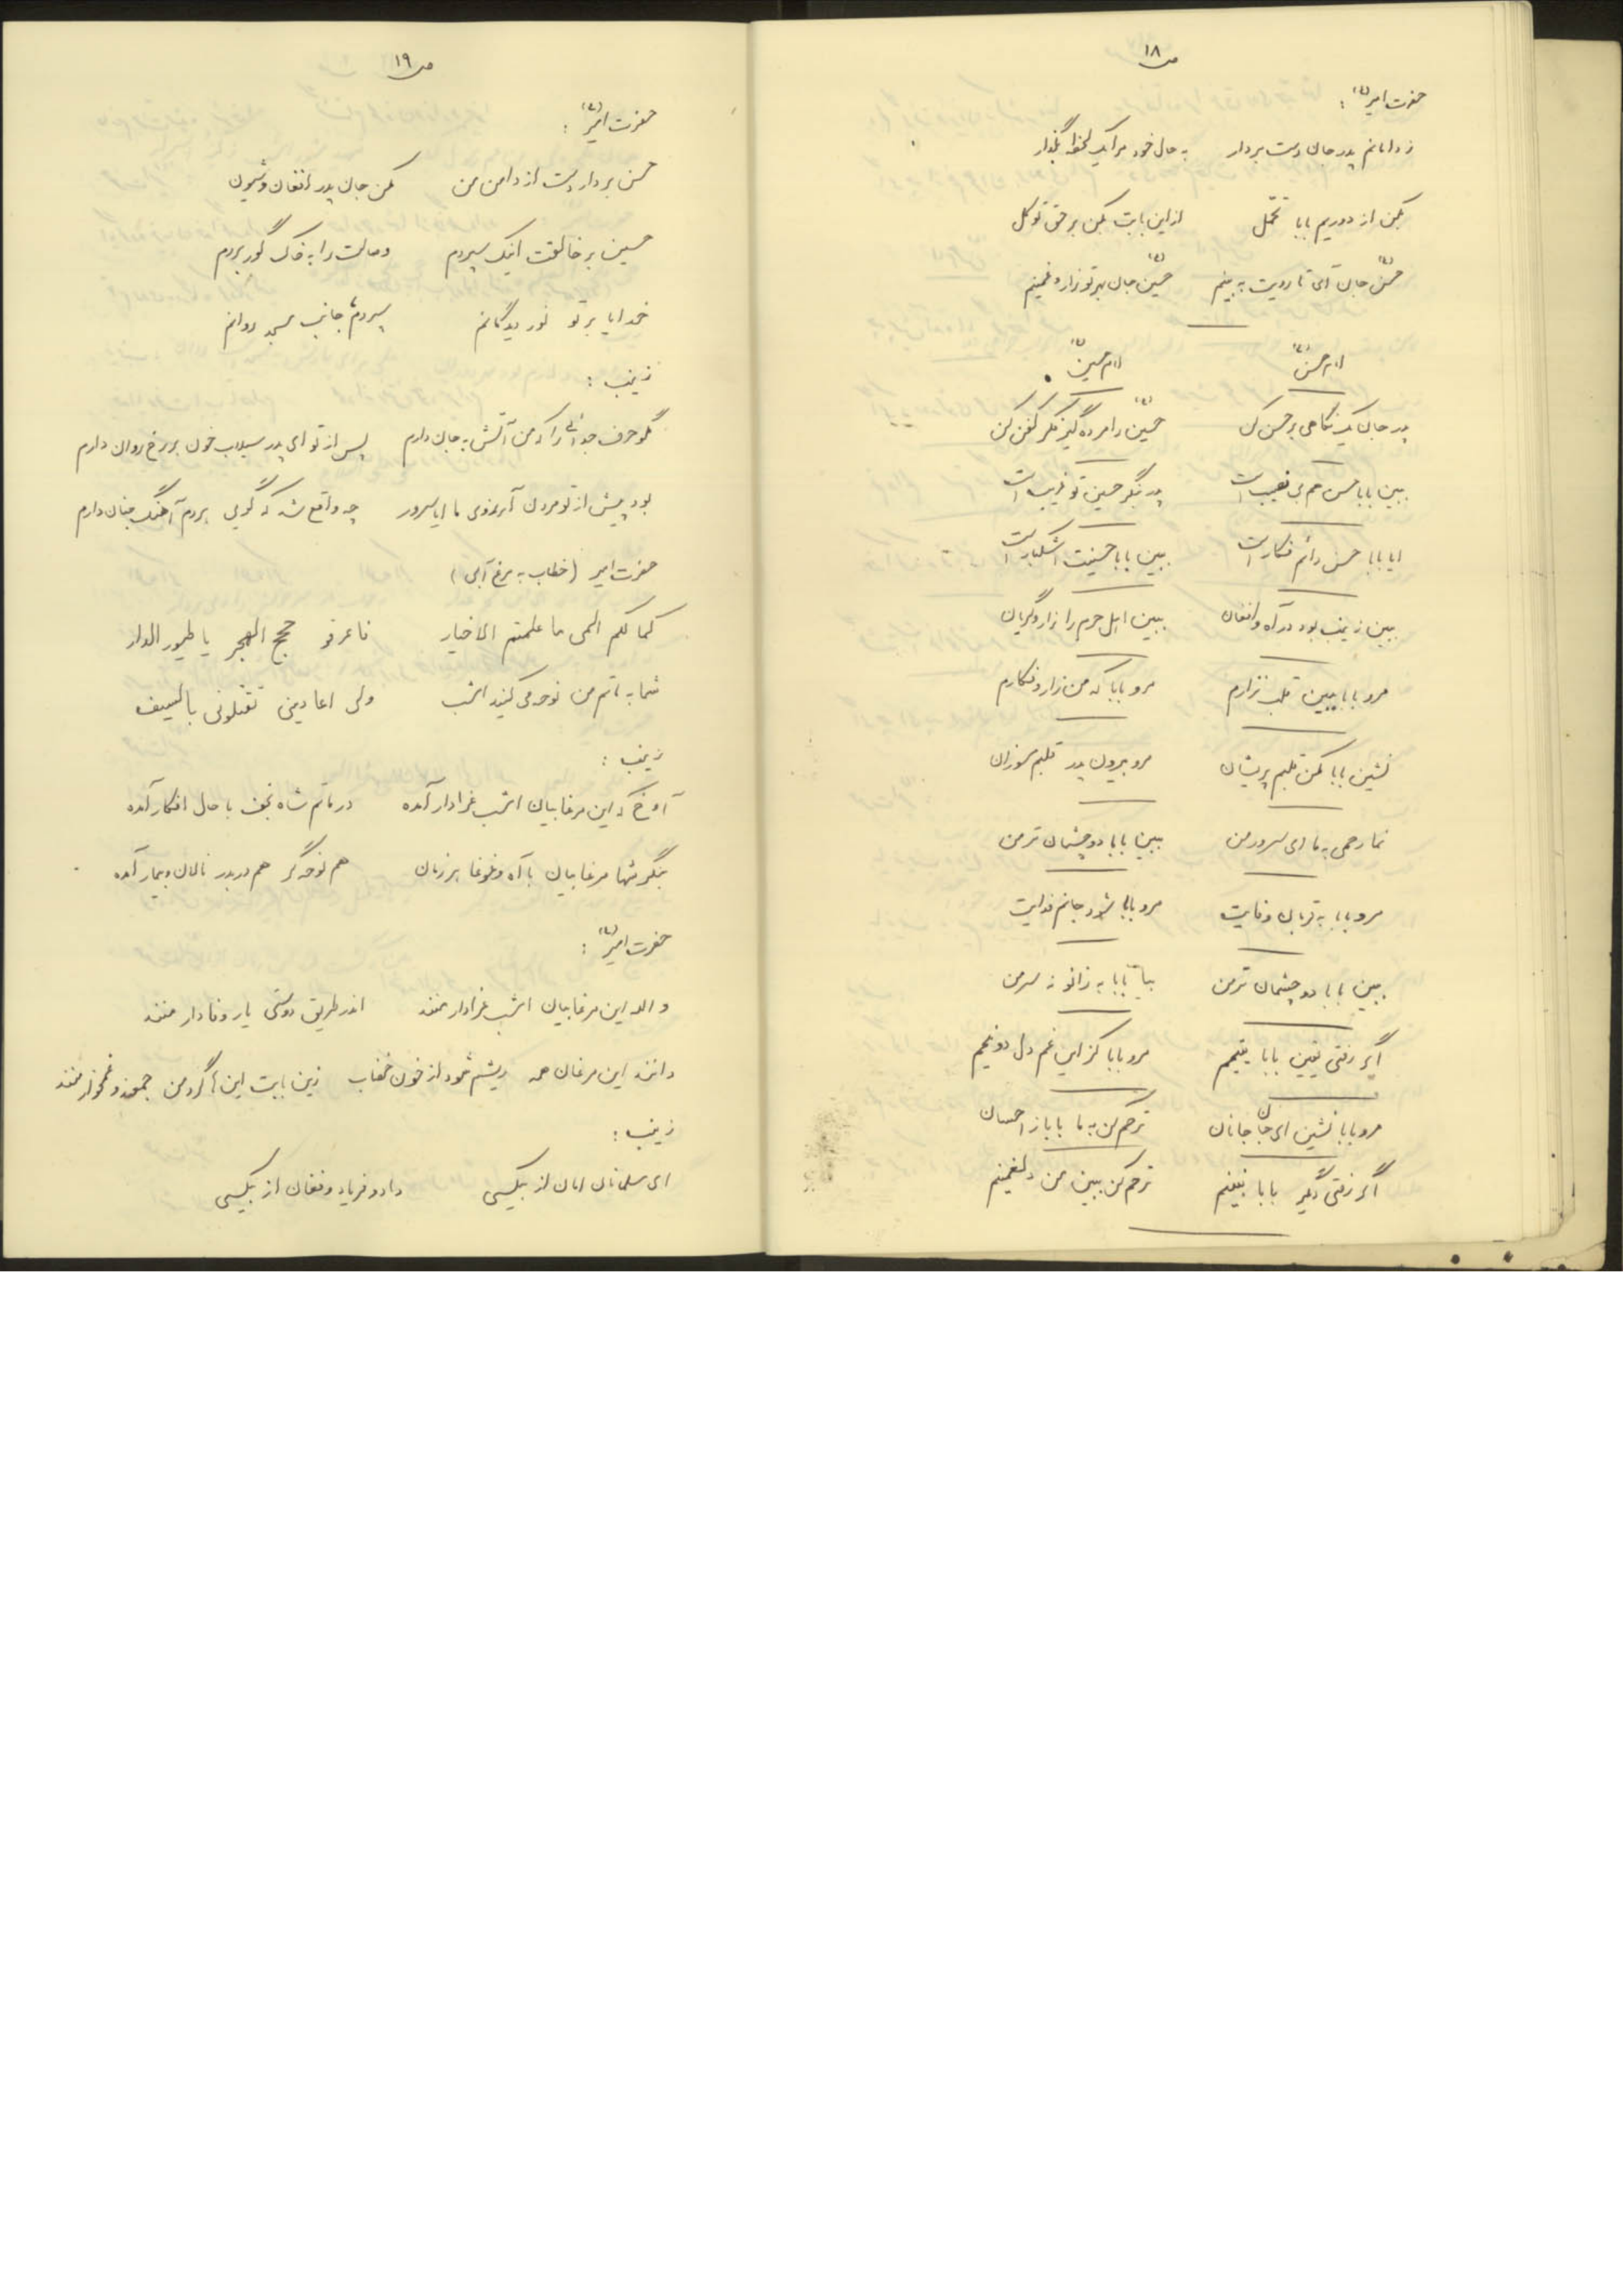 ص ۱۸
حضرت امیر (ع) :
ز دامانم پدر جان دست بردار به حال خود مرا یک لحظه بگذار
بکن از دوریم بابا تحمل از این بابت بکن بر حق توکل
حسن (ع) جان آی تا رویت به بینم حسین (ع) جان بهر تو زار و غمینم
امام حسن (ع) امام حسین (ع)
پدر جان یک نگاهی بر حسن کن حسین (ع) را مرده گیر فکر کفن کن
ببین بابا حسن هم بی نصیب است پدر بنگر حسین تو غریب است
ایا بابا حسن دائم فکار است ببین بابا حسینت اشکبار است
ببین زینب بود در آه و افغان ببین اهل حرم را زار و گریان
مرو بابا ببین قلب نزارم مرو بابا که من زار و فکارم
نشین بابا مکن قلبم پریشان مرو بیرون پدر قلبم مسوزان
نما رحمی به ما ای سرور من ببین بابا دو چشمان تر من
مرو بابا به قربان وفایت مرو بابا شود جانم فدایت
ببین بابا دو چشمان تر من بیا بابا به زانو نه سر من
اگر رفتی یقین بابا یتیمم مرو بابا کز این غم دل دو نیمم
مرو بابا نشین ای جان جانان ترحم کن به ما بابا ز احسان
اگر رفتی دگر بابا نبینم ترحم کن ببین من دلغمینم
ص ۱۹
حضرت امیر (ع) :
حسن بردار دست از دامن من مکن جان پدر افغان و شیون
حسین بر خالقت اینک سپردم وصالت را به خاک گور بردم
خدایا بر تو نور دیدگانم سپردم جانب مسجد روانم
زینب :
مگو حرف جدائی را که من آتش به جان دارم پس از تو ای پدر سیلاب خون بر رخ روان دارم
بود پیش از تو مردن آرزوی ما ایا سرور چه واقع شد که گویی بردم آهنگ جنان دارم
حضرت امیر (خطاب به مرغ آبی)
کما لکم الهی ما علمتم الاخیار فاعرفو حجج الهجر یا طیور الدار
شما به ماتم من نوحه می کنید امشب ولی اعادینی تقتلونی بالسیف
زینب :
آوخ که این مرغابیان امشب عزادار آمده در ماتم شاه نجف با حال افکار آمده
بنگر شها مرغابیان با آه و غوغا بر زبان هم نوحه گر هم دربدر نالان و بیمار آمده
حضرت امیر (ع) :
والله این مرغابیان امشب عزادار منند اندر طریق دوستی یار وفادار منند
دانند این مرغان همه ریشم شود از خون خضاب زین بابت اینها گرد من جمعند و غمخوار منند
زینب :
ای مسلمانان امان از بیکسی داد و فریاد و فغان از بیکسی